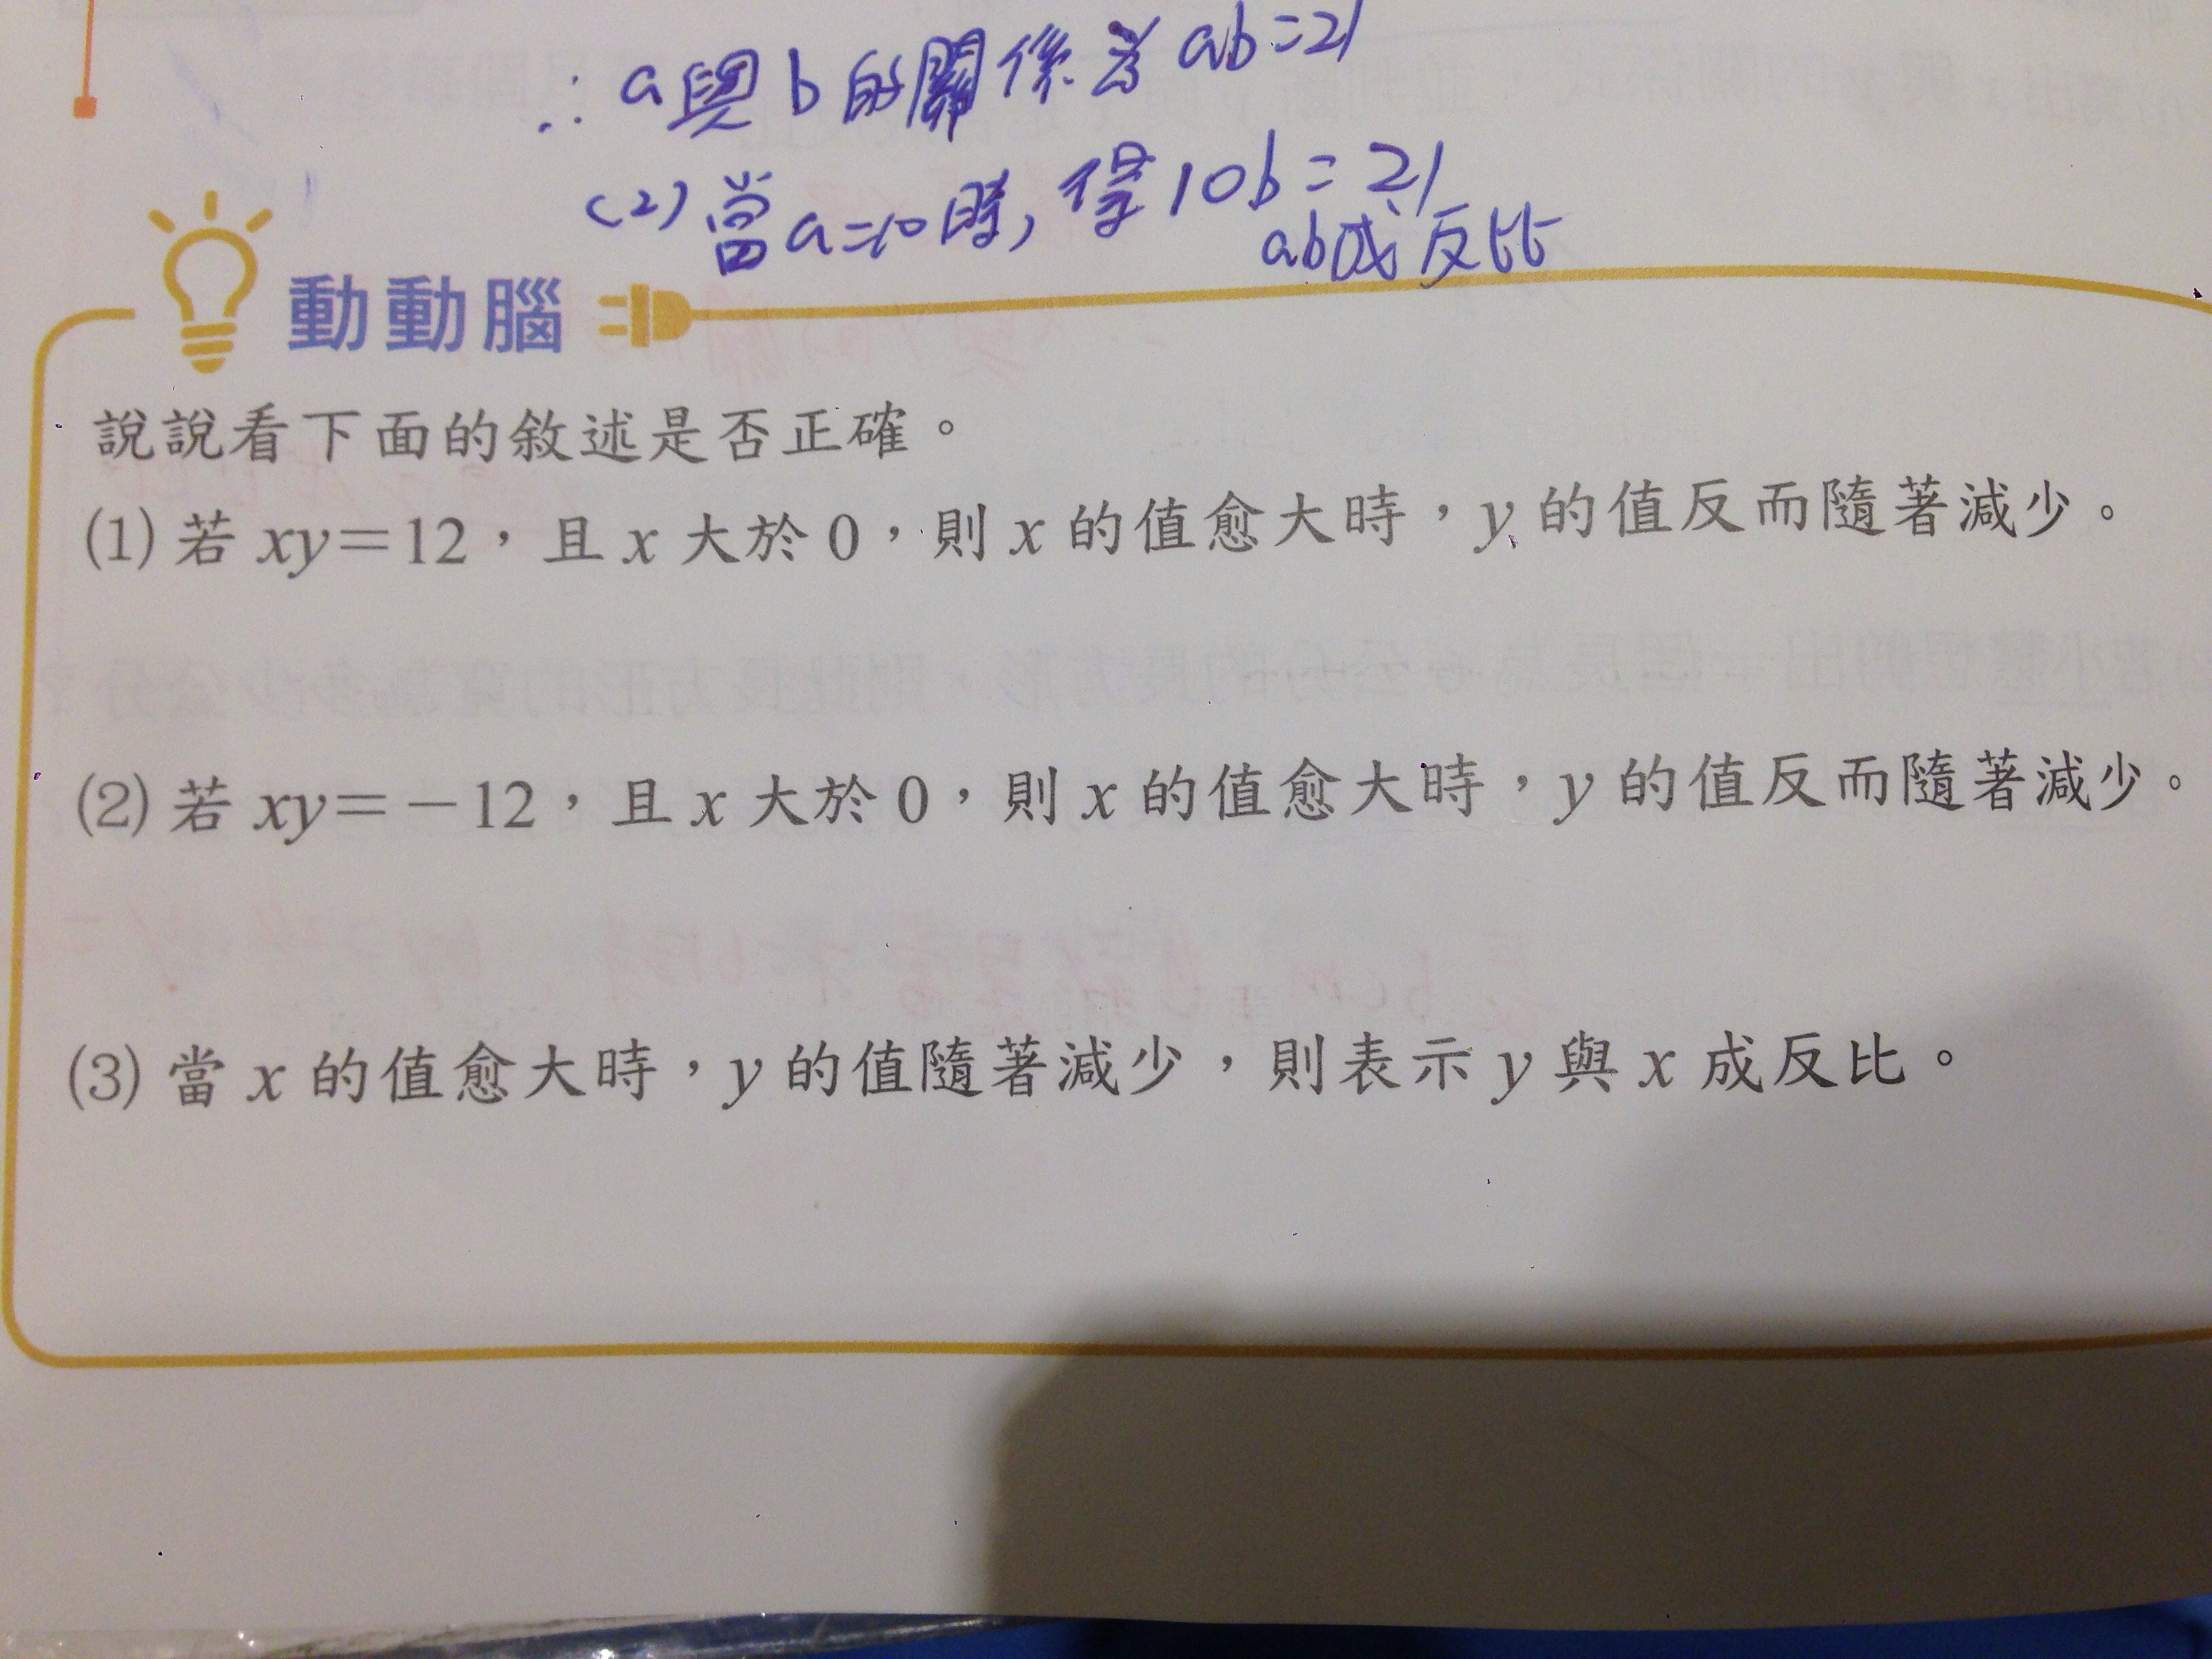 ∴a與b的關係為ab=21
(2)當a=10時,得10b=21
ab成反比
動動腦
說說看下面的敘述是否正確。
(1)若xy=12,且x大於0,則x的值愈大時,y的值反而隨著減少。
(2)若xy=-12,且x大於0,則x的值愈大時,y的值反而隨著減少。
(3)當x的值愈大時,y的值隨著減少,則表示y與x成反比。